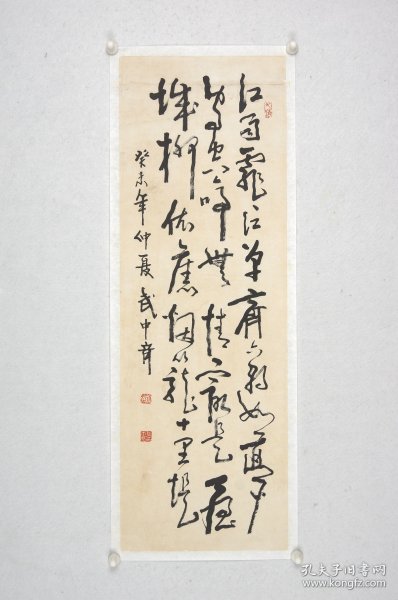 江雨霏霏江草齊六朝如夢
鳥空啼無情最是臺
城柳依舊烟籠十里堤
癸未年仲夏武中奇
孔夫子旧书网
www.kongfz.com